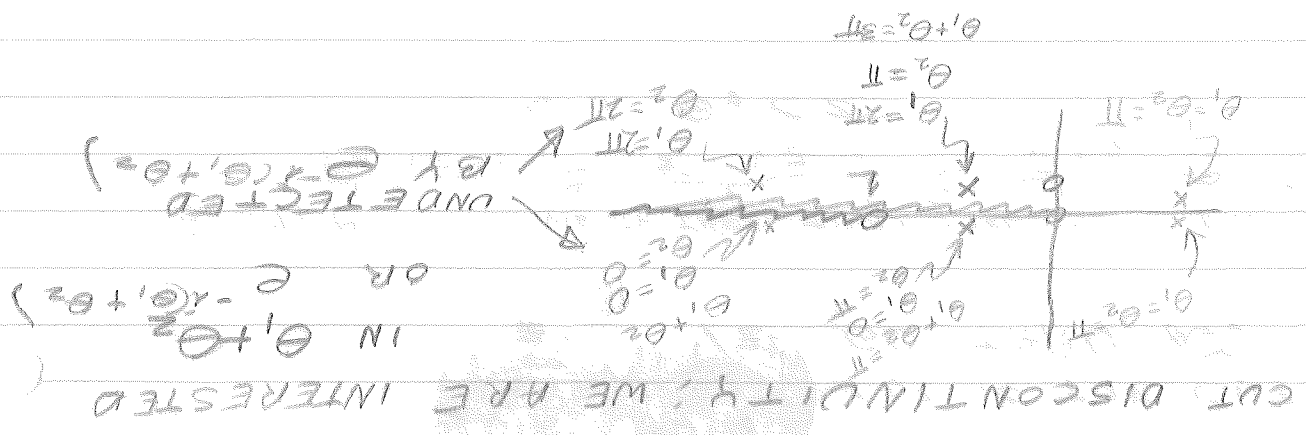 CUT DISCONTINUITY: WE ARE INTERESTED
IN θ₁+θ₂
OR e^-i(θ₁+θ₂)
θ₁=θ₂=π
θ₁+θ₂=π
θ₁=0
θ₂=π
θ₁+θ₂
θ₁=0
θ₂=0
UNDETECTED
BY e^-i(θ₁+θ₂)
0
1
θ₁=θ₂=π
θ₁=2π
θ₂=π
θ₁+θ₂=3π
θ₁=2π
θ₂=2π